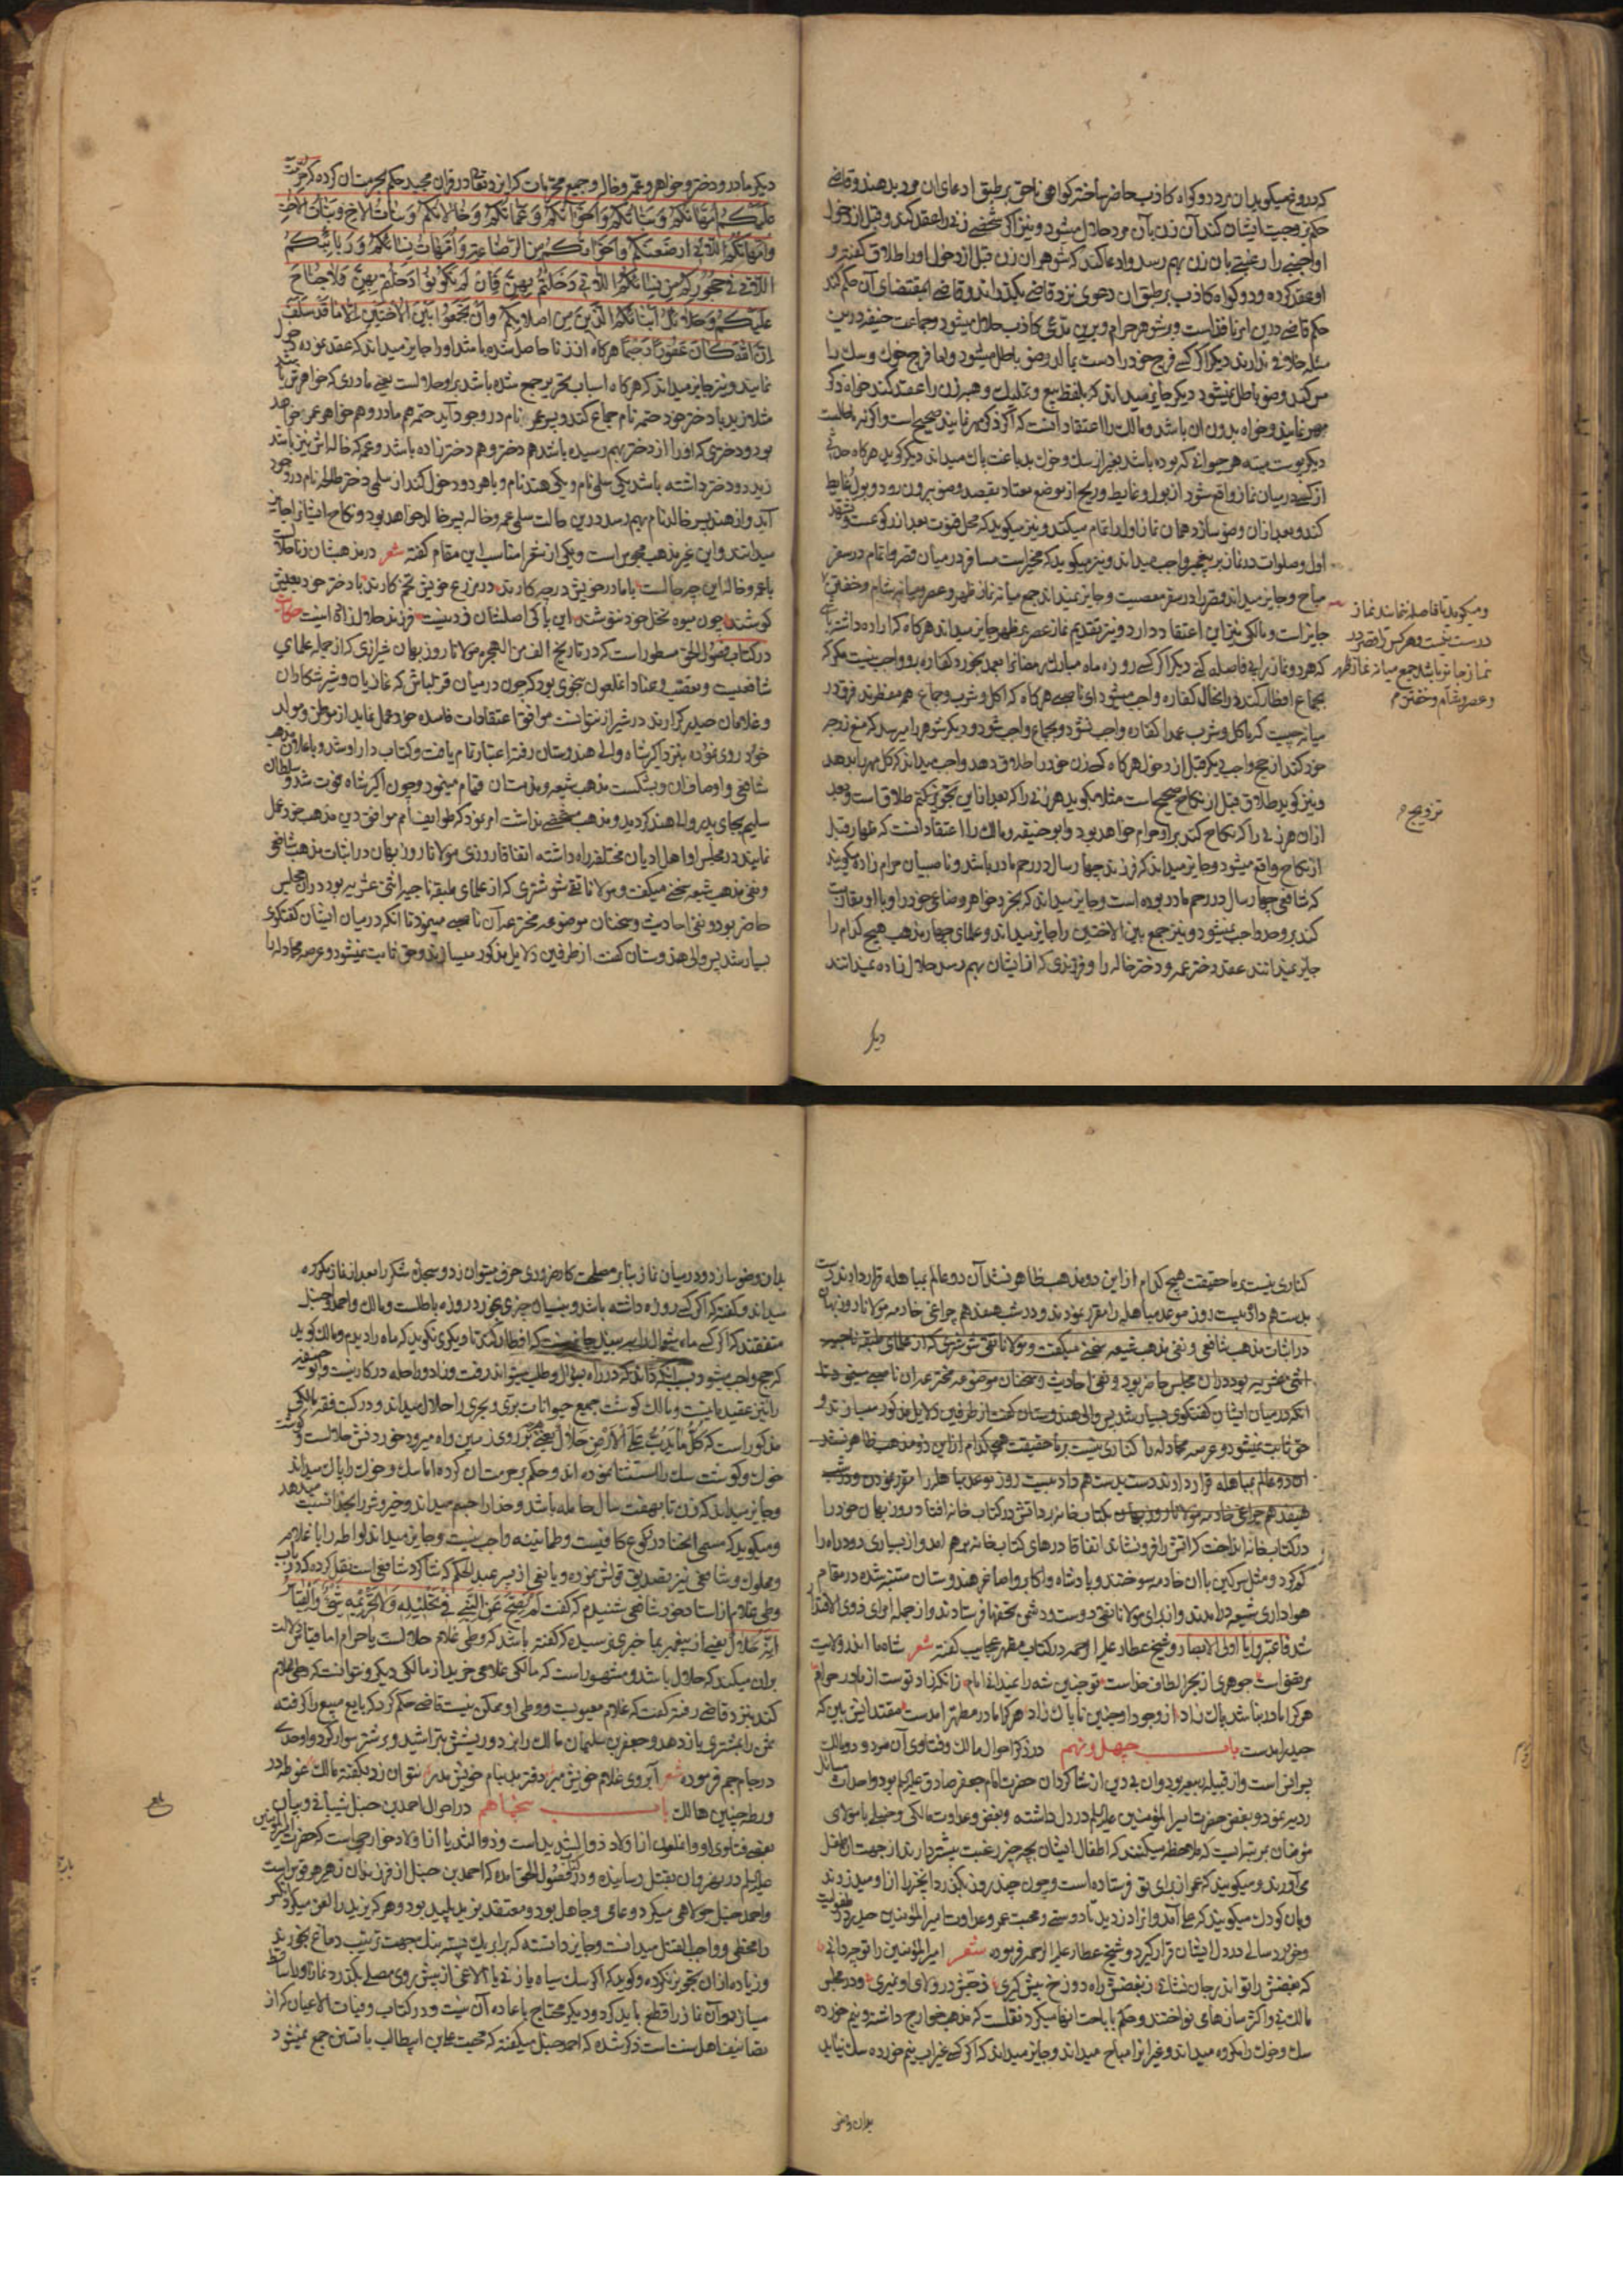 که دروغ میگویند ان مرد دو کواه کاذب حاضر ساخته کواهی ناحق بر طبق ادعای ان مرد بدهند و قاضی
حکم زوجیت ایشان کند آن زن بآن مرد حلال میشود و نیز اگر شخصی زنی را عقد کند و قبل از دخول
او اجنبی را رغبتی بان زن بهم رسد و ادعا کند که شوهر ان زن قبل از دخول او را طلاق گفته و
او عقد کرده و دو کواه کاذب بر طبق ان دعوی نزد قاضی بگذراند و قاضی بمقتضای آن حکم کند
حکم قاضی درین امر نافذ است و بر شوهر حرام و برین مدعی کاذب حلال میشود و جماعت حنیفه درین
مسئله خلافی ندارند دیگر اگر کسی فرج خود را دست بمالد وضو باطل میشود و اما فرج خوک و سک را
مس کند وضو باطل نمیشود دیگر جایز میداند که بلفظ بیع و تملیک و هبه زن را عقد کنند خواه ذکر
مهر نمایند و خواه بدون ان باشد و مالک را اعتقاد آنست که اگر ذکر مهر نمایند صحیح است و اگر نه باطلست
دیگر پوست میته هر حیوانی که بوده باشد بغیر از سک و خوک بدباغت پاک میداند دیگر کوید هرکاه حدثی
از کسی در میان نماز واقع شود از بول و غایط و ریح از موضع معتاد بقصد وضو بیرون رود و بول و غایط
کند و بعد ازان وضو سازد و همان نماز اول را تمام میکند و نیز میکوید که محل قنوت بعد از رکوعست و تشهد
اول و صلوات در نماز بر پیغمبر واجب میداند و نیز میکوید که مخیر است مسافر در میان قصر و اتمام در سفر
مباح و جایز میداند قصر را در سفر معصیت و جایز نمیداند جمع میانه نماز ظهر و عصر و میانه شام و خفتن
جایز است و مالک نیز این اعتقاد دارد و نیز تقدیم نماز عصر بر ظهر جایز میداند هرکاه که اراده داشته باشد
که هر دو نماز را بی فاصله کند دیگر اگر کسی روزه ماه مبارک رمضان را بعمد بخورد کفاره برو واجب نیست مگر که
بجماع افطار کند در انحال کفاره واجب میشود ای ناصبی هرکاه که اکل و شرب و جماع هم مفطرند فرق در
میانه چیست که باکل و شرب عمدا کفاره واجب نشود و بجماع واجب شود و دیگر شوهر را میرسد که منع زوجه
خود کند از حج واجب دیگر قبل از دخول هرکاه کسی زن خود را طلاق دهد واجب میداند که کل مهر را بدهد
و نیز کوید طلاق قبل از نکاح صحیح است مثلا میکوید هر زنی را که بعد ازاین تزویج کنم طلاق است و بعد
ازان هر زنی را که نکاح کند بر او حرام خواهد بود و ابو حنیفه و مالک را اعتقاد انست که ظهار قبل
از نکاح واقع میشود و جایز میداند که فرزند چهار سال در رحم مادر باشد و ناصبیان حرام زاده میکویند
که شافعی چهار سال در رحم مادر بوده است و جایز میداند که بخرد خواهر رضاعی خود را و با او مقاربت
کند بر وحد واجب نمیشود و نیز جمع بین الاختین را جایز میداند و علمای چهار مذهب هیچ کدام را
جایز نمیدانند عقد دختر عمه و دختر خاله را و فرزندی که از ایشان بهم رسد حلال زاده نمیدانند
دیگر
ومیکوید تا فاصله نماند نماز
درست نیست و هر کس را قصر در
نماز جایز باشد جمع میانه نماز ظهر
و عصر و شام و خفتن هم
تزویج
دیگر مادر و دختر و خواهر و عمه و خال و جمیع محرمات که ایزد تعالی در قران مجید حکم بحرمتشان کرده که حرمت
علیکم امهاتکم و بناتکم و اخواتکم و عماتکم و خالاتکم و بنات الاخ و بنات الاخت
وامهاتکم اللاتی ارضعنکم و اخواتکم من الرضاعة و امهات نسائکم و ربائبکم
اللاتی فی حجورکم من نسائکم اللاتی دخلتم بهن فان لم تکونوا دخلتم بهن فلا جناح
علیکم و حلائل ابنائکم الذین من اصلابکم وان تجمعوا بین الاختین الا ما قد سلف
ان الله کان غفورا رحیما هرکاه از زنا حاصل شده باشد او را جایز میداند که عقد نموده دخول
نمایند و نیز جایز میداند که هرکاه اسباب تحریر جمع شده باشد بر او حلالست یعنی مادری که خواهرش باشد
مثلا زید با دختر خود حتمه نام جماع کند و پسر عمر نام در وجود آید حتمه هم مادر و هم خواهر عمر خواهد
بود و دختری که او را از دختر بهم رسیده باشد هم دختر و هم دختر زاده باشد و عمه که خاله اش نیز باشد
زید دو دختر داشته باشد یکی سلمی نام و یکی هند نام و با هر دو دخول کند از سلمی دختر طالحه نام در وجود
آید و از هند پسر خالد نام بهم رسد درین حالت سلمی عمه و خاله پسر خالد خواهد بود و نکاح ایشانرا جایز
میدانند و این غیر مذهب مجوس است و یکی از شعرا مناسب این مقام گفته شعر در مذهبشان زنا حلال است
با عمه و خاله این چه حالست با مادر خویش در چه کارند در مزرع خویش تخم کارند با دختر خود بعیش
کوشند چون میوه نخل خود نیوشند این پاکی اصلشان و دینست فرزند حلال زاده اینست حکایت
در کتاب فصول الحق مسطور است که در تاریخ الف من الهجره مولانا روزبهان شیرازی که از جمله علمای
شافعیست و تعصب و عناد اغلعون بنحوی بود که چون در میان قزلباش که غازیان و شیر شکاران
و غلامان حیدر کرارند در شیراز نتوانست موافق اعتقادات فاسده خود عمل نماید از موطن و مولد
خود روی نموده بنزد اکبر شاه والی هندوستان رفته اعتبار تمام یافت و کتاب دار او شد و باعلان مذهب
شافعی و اوصاف ان و شکست مذهب شیعه و مذمت ان قیام مینمود و چون اکبر شاه فوت شد و سلطان
سلیم بجای پدر والی هند گردید و مذهب مشخصی نداشت امر نمود که طوایف امم موافق دین و مذهب خود عمل
نمایند در مجلس او اهل ادیان مختلفه راه داشته اتفاقا روزی مولانا روزبهان در اثبات مذهب شافعی
و نفی مذهب شیعه سخنی میکفت و مولانا تقی شوشتری که از علمای طبقه ناجیه اثنی عشریه بود دران مجلس
حاضر بود و نفی احادیث و سخنان موضوعه مخترعه آن ناصبی مینمود تا انکه در میان ایشان کفتکوی
بسیار شد پس والی هندوستان کفت از طرفین دلایل مذکور میسازند و حق ثابت نمیشود و عرصه مجادله را
کناری نیست بر ما حقیقت هیچ کدام از این دو مذهب ظاهر نشد آن دو عالم بمباهله قرار دادند دست
بدست هم داد بیست روز موعد مباهله را مقرر نمودند و در شب هفدهم چراغی خادمه مولانا روزبهان
در اثبات مذهب شافعی و نفی مذهب شیعه سخنی میکفت و مولانا تقی شوشتری که از علمای طبقه ناجیه
اثنی عشریه بود دران مجلس حاضر بود و نفی احادیث و سخنان موضوعه مخترعه ان ناصبی مینمود تا
انکه در میان ایشان کفتکوی بسیار شد پس والی هندوستان کفت از طرفین دلایل مذکور میسازند و
حق ثابت نمیشود و عرصه مجادله را کناری نیست بر ما حقیقت هیچ کدام از این دو مذهب ظاهر نشد
ان دو عالم بمباهله قرار دادند دست بدست هم داد بیست روز موعد مباهله را مقرر نمودن و در شب
هیفدهم چراغی خادمه مولانا روزبهان بکتاب خانه برد اتش در کتاب خانه افتاد روزبهان خود را
در کتاب خانه انداخت که اتش را فرو نشاند اتفاقا درهای کتاب خانه بر هم امد و از بسیاری دود راه را
کم کرد و مثل سرکین با ان خادمه سوختند و پادشاه و اکابر و اصاغر هندوستان متنبه شده در مقام
هواداری شیعه در امدند و از برای مولانا تقی دوست و دشمن تحفها فرستادند و از جمله امرای ذوی الاقتدار
شد فاعتبروا یا اولی الابصار و شیخ عطار علیه الرحمه در کتاب مظهر عجایب کفته شعر شاه ما اندر ولایت
مرتضی است جوهری از بحر الطاف خداست تو چنین شه را ندانی امام زانکه زاد توست از مادر حرام
هر کرا مادر نباشد پاک زاد از وجود او چنین ناپاک زاد هر کرا مادر مطهر امدست مقتدایش بین که
حیدر امدست باب چهل و نهم در ذکر احوال مالک و فتاوی آن مردود و مالک
پیرانی است و از قبیله سعد بود وان بی دین از شاکردان حضرت امام جعفر صادق علیه السلام بود و احداث مسائل
ردیه نمود و بغض حضرت امیر المؤمنین علیه السلام در دل داشته و بغض و عداوت مالکی و حنبلی با مولای
مؤمنان بمرتبه ایست که ملاحظه میکنند که اطفال ایشان بچه چیز رغبت بیشتر دارند از جهت ان طفل
می آورند و میکویند که عمر از برای تو فرستاده است و چون چند روز بگذرد انچیز را از او میدزدند
وبان کودک میکویند که علی آمد و انرا دزدید تا دوستی و محبت عمر و عداوت امیر المؤمنین حیدر در طفولیت
و خورد سالی در دل ایشان قرار کیرد و شیخ عطار علیه الرحمه فرموده شعر امیر المؤمنین را تو چه دانی
که بغضش را تو اندر جان نشانی ز بغضش راه دوزخ پیش کیری ز حبش در ولای او نمیری و در مجلس
مالک نی و اکثر سازهای نواختند و حکم باباحت انها میکرد نقلست که مذهب خوارج داشته و نیم خورده
سک و خوک را مکروه میداند و غیر انرا مباح میداند و جایز میداند که اگر کسی بغیر اب نیم خورده سک نیابد
بدان وضو
بدان وضو سازد و در میان نماز بنا بر مصلحت کار ضروری حرف میتوان زد و سجده شکر را بعد از نماز مکروه
میداند و کفته که اگر کسی روزه داشته باشد و بنسیان چیزی بخورد روزه باطلست و مالک و احمد حنبل
متفقند که اگر کسی ماه شوال را ببیند جایز نیست که افطار کند تا دیکری نکوید که ماه را دیدم و مالک کوید
که حج واجب میشود بر انکه داند که در راه بسؤال و طلب میتواند رفت و زاد و راحله در کار نیست و ابو حنیفه
را نیز عقیده اینست و مالک کوشت جمیع حیوانات بری و بحری را حلال میداند و در کتب فقه مالکی
مذکور است که کل ما یدب علی الارض حلال یعنی هرچه بر روی زمین راه میرود خوردنش حلالست و کوشت
خوک و کوشت سک را استثنا نموده اند و حکم بر حرمت ان کرده اما سک و خوک را پاک میداند
و جایز میداند که زن تا بهفت سال حامله باشد و خدا را جسم میداند و خیر و شر را بخدا نسبت میدهد
و میکوید که مسمی انحنا در رکوع کافیست و طمانینه واجب نیست و جایز میداند لواطه را با غلام
و مملوک و شافعی نیز تصدیق قولش نموده و یافعی از پسر عبد الحکم که شاکرد شافعی است نقل کرده که در باب
وطی غلام از استاد خود شافعی شنیدم که کفت لم یصح عن النبی فی تحلیله ولا تحریمه شئ والقیاس
انه حلال یعنی از پیغمبر بما خبری نرسیده که کفته باشد که وطی غلام حلالست یا حرام اما قیاس دلالت
بران میکند که حلال باشد و مشهور است که مالکی غلامی خرید از مالکی دیگر و نتوانست که وطی غلام
کند بنزد قاضی رفته کفت که غلام معیوبست و وطی او ممکن نیست قاضی حکم کرد که بایع مبیع را کرفته
ثمن را بمشتری باز دهد و جعفر بن سلیمان مالک را بزد و ریشش بتراشید و بر شتر سوار کرد و اوحدی
در جام جم فرموده شعر آبروی غلام خویش مبر دفتر بد بنام خویش مدر نتوان زد بکفته مالک غوطه در
ورطه چنین هالک باب پنجاهم در احوال احمد بن حنبل شیبانی و بیان
بعضی فتاوی او و انملعون از اولاد ذو الثدیه است و ذو الثدیه از اولاد خوارجی است که حضرت امیر المؤمنین
علیه السلام در نهروان بقتل رسانیده و در کتاب فصول الحق امده که احمد بن حنبل از فرزندان زهیر هر قوس است
و احمد حنبل جولاهی میکرد و عامی و جاهل بود و معتقد یزید پلید بود و هر که یزید را لعن میکرد انکس
را مخطی و واجب القتل میدانست و جایز دانسته که برابر یک پسته بنک جهت ترتیب دماغ بخورند
و زیاده ازان تجویز نکرده و کوید که اگر سک سیاه یا زنی یا الاغی از پیش روی مصلی بگذرد نماز او را ساقط
میسازد و آن نماز را قطع باید کرد و دیگر محتاج باعاده آن نیست و در کتاب وفیات الاعیان که از
تصانیف اهل سنت است ذکر شده که احمد حنبل میکفته که محبت علی بن ابیطالب با تسنن جمع نمیشود